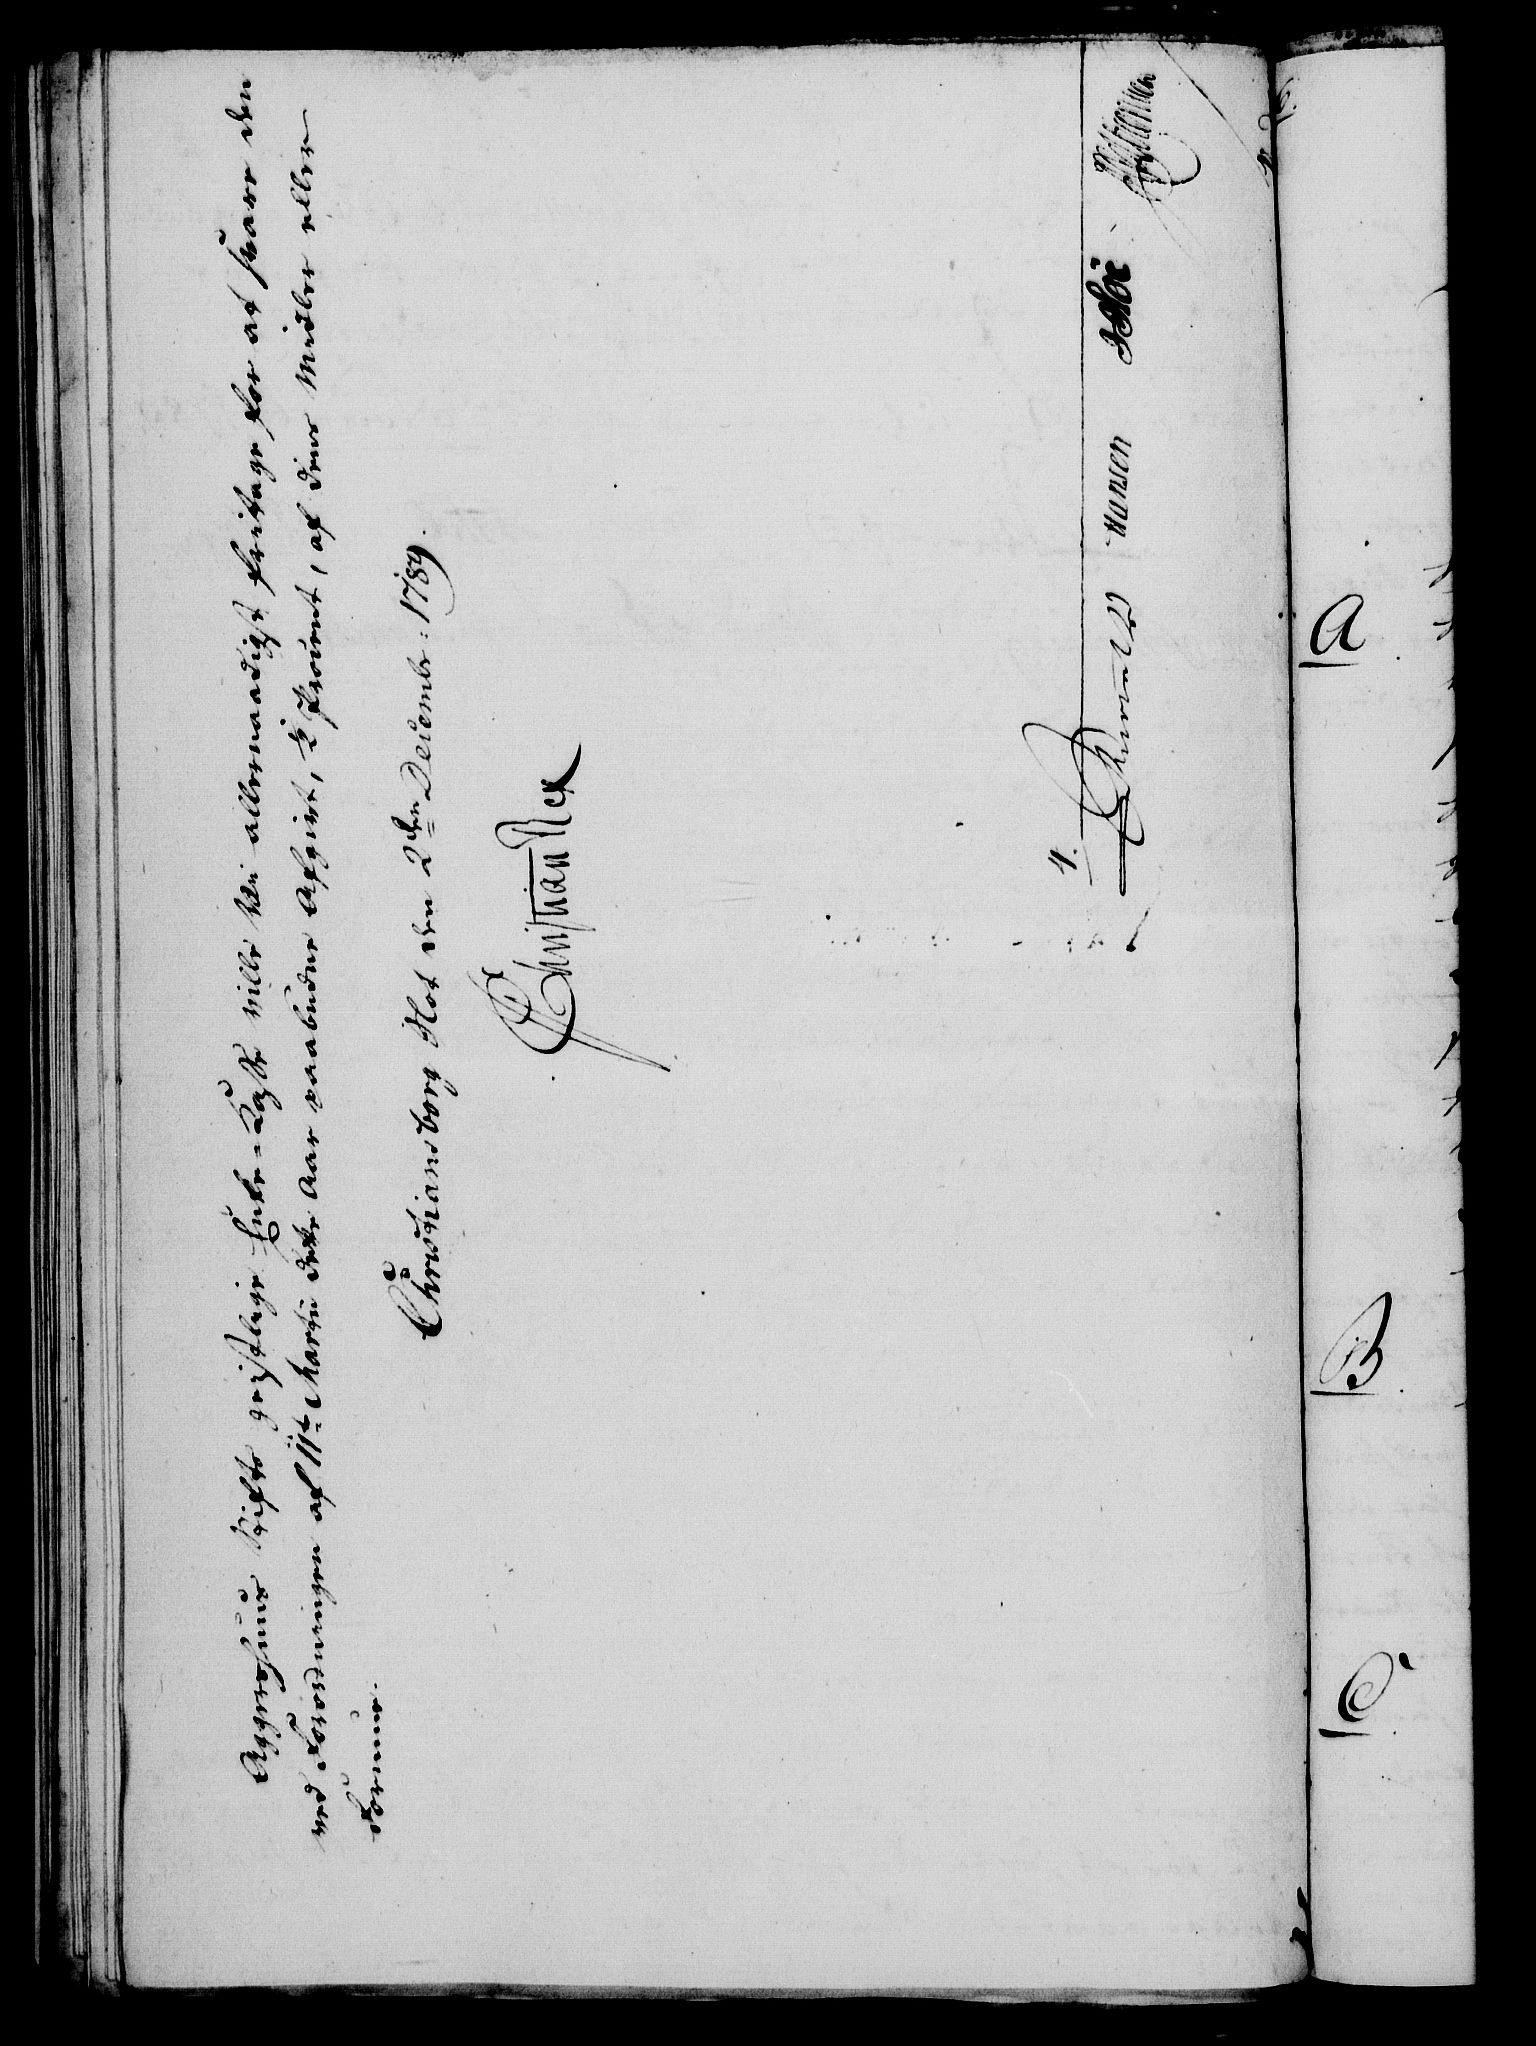 Aggershuus Stifts geistlige Enke-Casse ville Vi allernaadigst fritage for at svare den
ved Forordningen af 11te Martii dette Aar paabudne Afgivt, ½ Procent, af dens Midler eller
Formue.
Christiansborg Slot den 2den Decembr: 1789.
Christian Rex
4.
Hansen
Høÿ
A
B
C